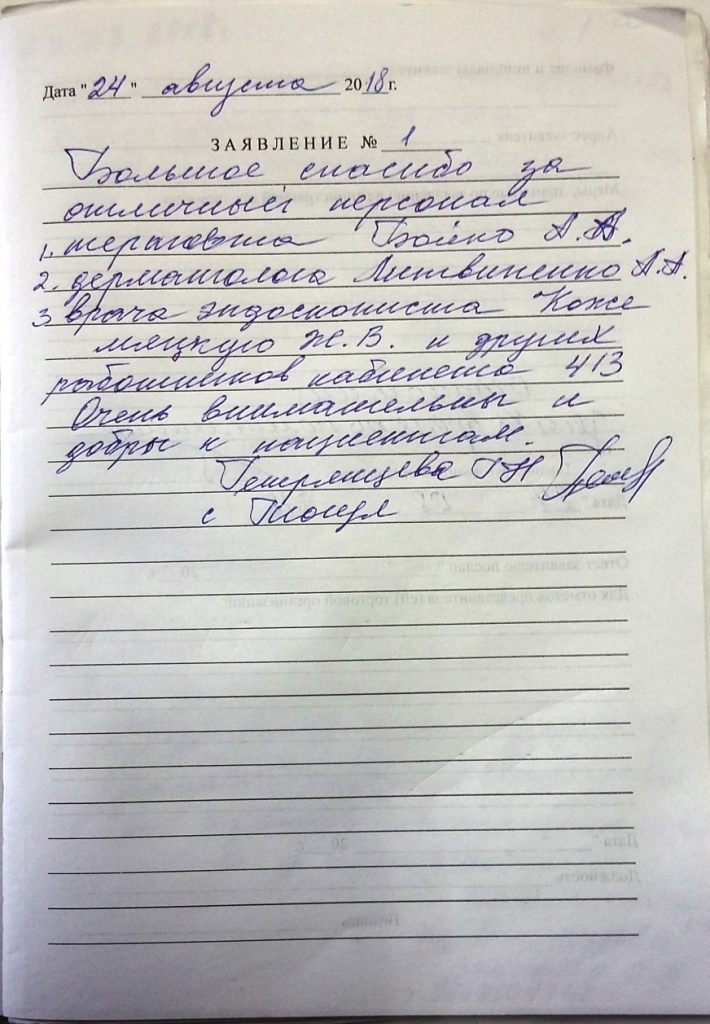 Дата "24" августа 2018 г.
ЗАЯВЛЕНИЕ № 1
Большое спасибо за
отличный персонал
1. терапевта Бойко А.А.
2. дерматолога Литвиненко А.А.
3. врача эндоскописта Коже
мяцкую Ж.В. и других
работников кабинета 413
Очень внимательны и
добры к пациентам.
с Тогул